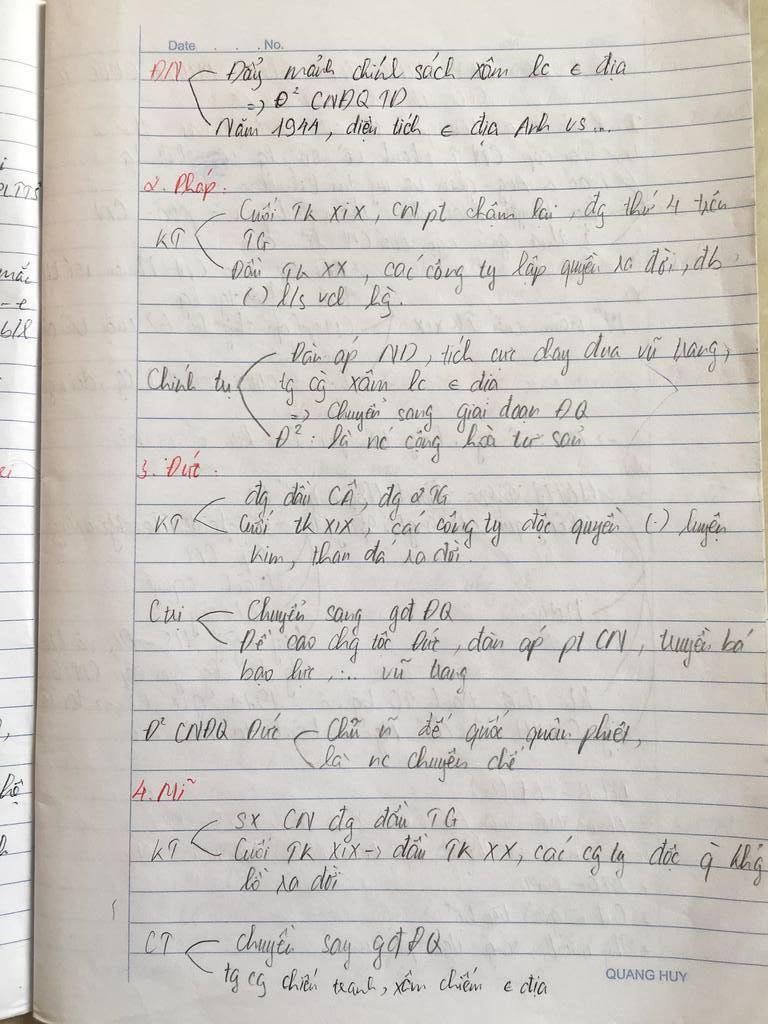 Date . . . . No.
ĐN Đẩy mảnh chính sách xâm lc ∈ địa
=> Đ² CNĐQ TD
Năm 1944, diện tích ∈ địa Anh vs ...
2. Pháp.
Cuối TK XIX, CN pt chậm lại, đg thứ 4 trên
KT
TG
Đầu TK XX, các công ty lập quyền ra đời, đb
(.) l/s
Đàn áp ND, tích cực chạy đua vũ trang,
Chính trị tg cg xâm lc ∈ địa
=> Chuyển sang giai đoạn ĐQ
Đ²: là nc cộng hòa tư sản
3. Đức.
đg đầu CÂ, đg 2 TG
KT Cuối tk XIX, các công ty độc quyền (.) luyện
kim, than đá ra đời.
Ctrị Chuyển sang gđ ĐQ
Đề cao chg tộc Đức, đàn áp pt CN, truyền bá
bạo lực, ... vũ trang
Đ² CNĐQ Đức Chủ n đế quốc quân phiệt,
là nc chuyên chế
4. Mĩ
SX CN đg đầu TG
KT Cuối TK XIX -> đầu TK XX, các cg ty độc q̀ khg
lồ ra đời
CT chuyển sag gđ ĐQ
tg cg chiến tranh, xâm chiếm ∈ địa
QUANG HUY